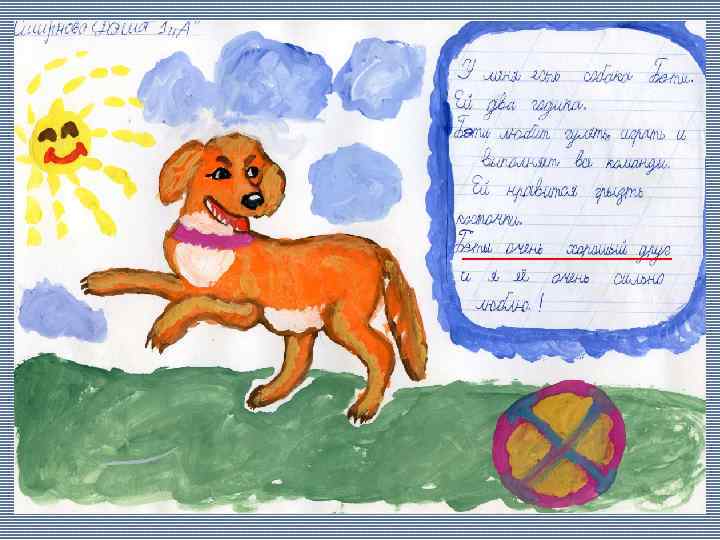 Смирнова Даша 1 "А"
У меня есть собака Бэти.
Ей два годика.
Бэти любит гулять, играть и
выполнят все команды.
Ей нравится грызть
косточки.
Бэти очень хороший друг
и я её очень сильно
люблю!